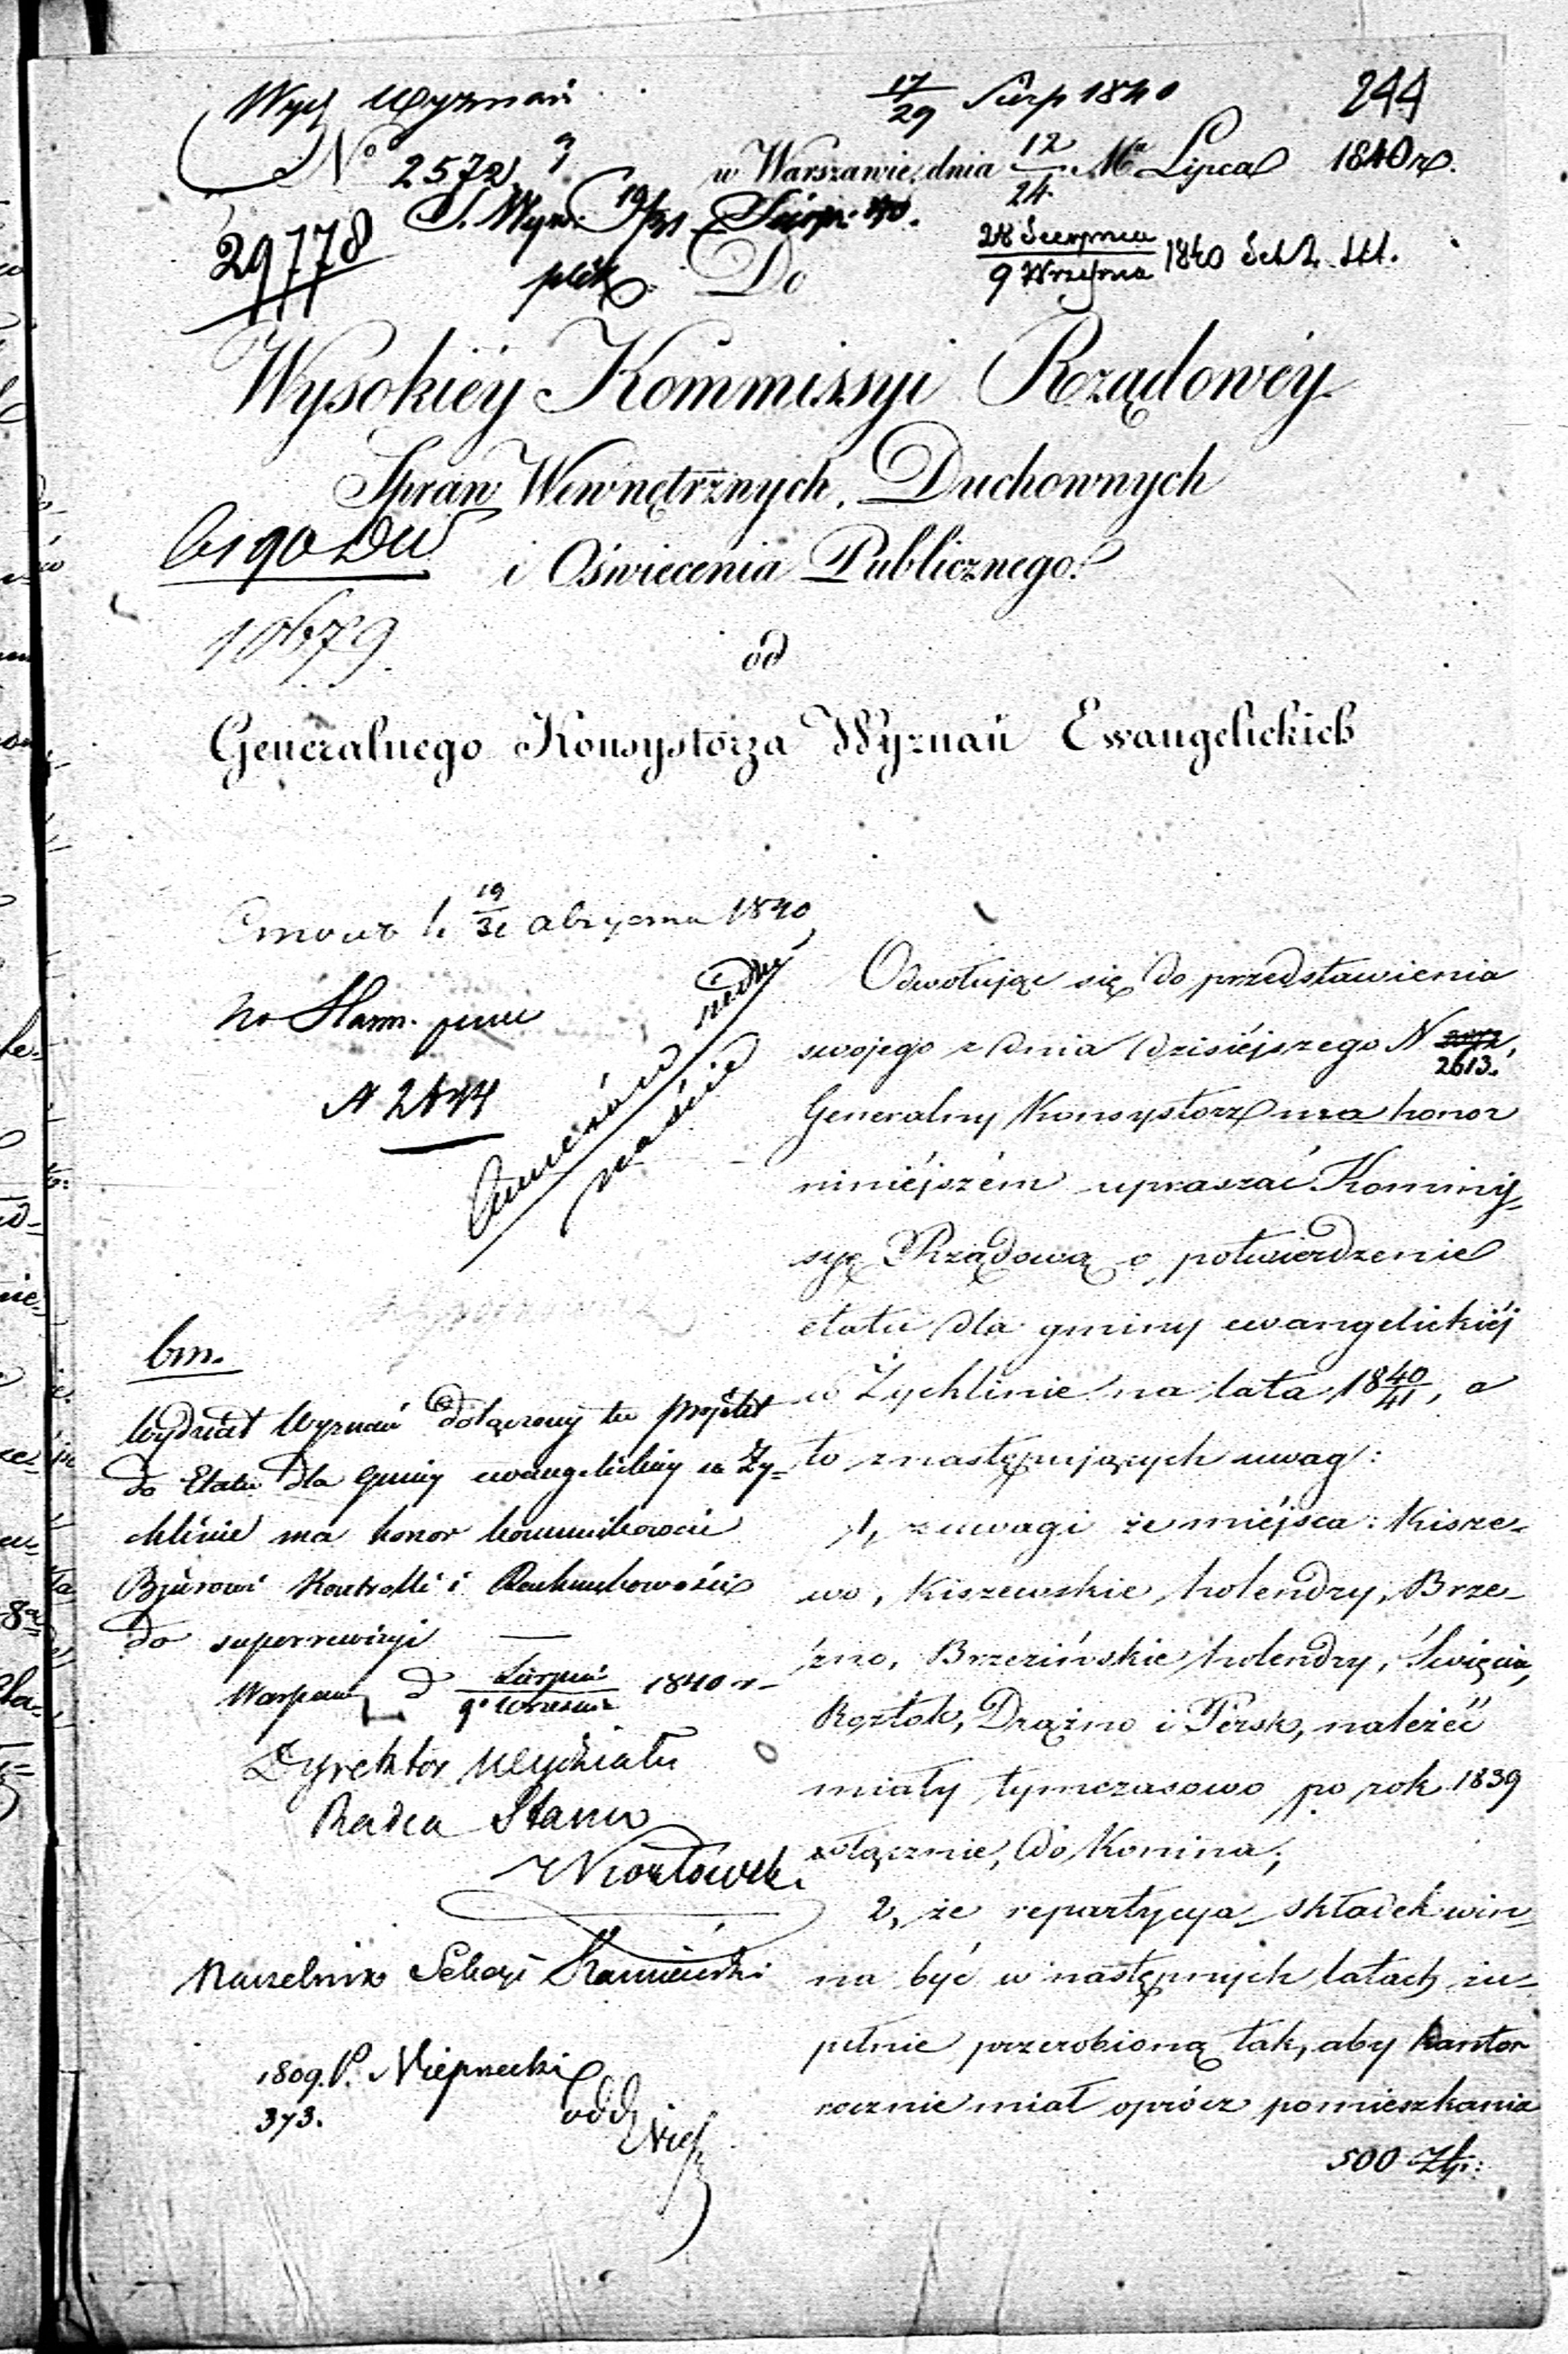 Wyd. Wyznań
17/29 Sierp 1840
244
No 2572
w Warszawie, dnia 12/24 Mca Lipca 1840 r.
S. Wyzn. 19/31 Sierp: 40.
29778
28 Sierpnia / 9 Września 1840
Do
Wysokiéy Kommissyi Rządowéy
Spraw Wewnętrznych, Duchownych
i Oświecenia Publicznego.
10679.
od
Generalnego Konsystorza Wyznań Ewangelickich
19/31 1840
N 2644
Odwołując się do przedstawienia
swojego z dnia dzisiéjszego N 2613.
Generalny Konsystorz ma honor
niniéjszém upraszać Kommis-
syę Rządową o potwierdzenie
etatu dla gminy ewangelickiéj
w Żychlinie na lata 1840/41, a
to z następujących uwag:
1, z uwagi że miéjsca: Kisze-
wo, Kiszewskie holendry, Brze-
źno, Brzezińskie holendry, Święcia,
Rożtok, Drążno i Persk, należéć
miały tymczasowo po rok 1839
włącznie, do Konina;
2, że repartycya składek win-
na być w następnych latach zu-
pełnie przerobioną tak, aby Kantor
rocznie miał oprócz pomieszkania
500 Złp:
bm.
Wydział Wyznań dołączony tu projekt
do Etatu dla Gminy ewangelickiéy w Ży-
chlinie ma honor kommunikować
Bjórowi Kontrolli i Rachunkowości
do superrewizyi —
Warszawa d Sierpnia / 9 Września 1840 r.
Dyrektor Wydziału
Radca Stanu
Naczelnik Sekcyi Kamieński
1809. P.
373.